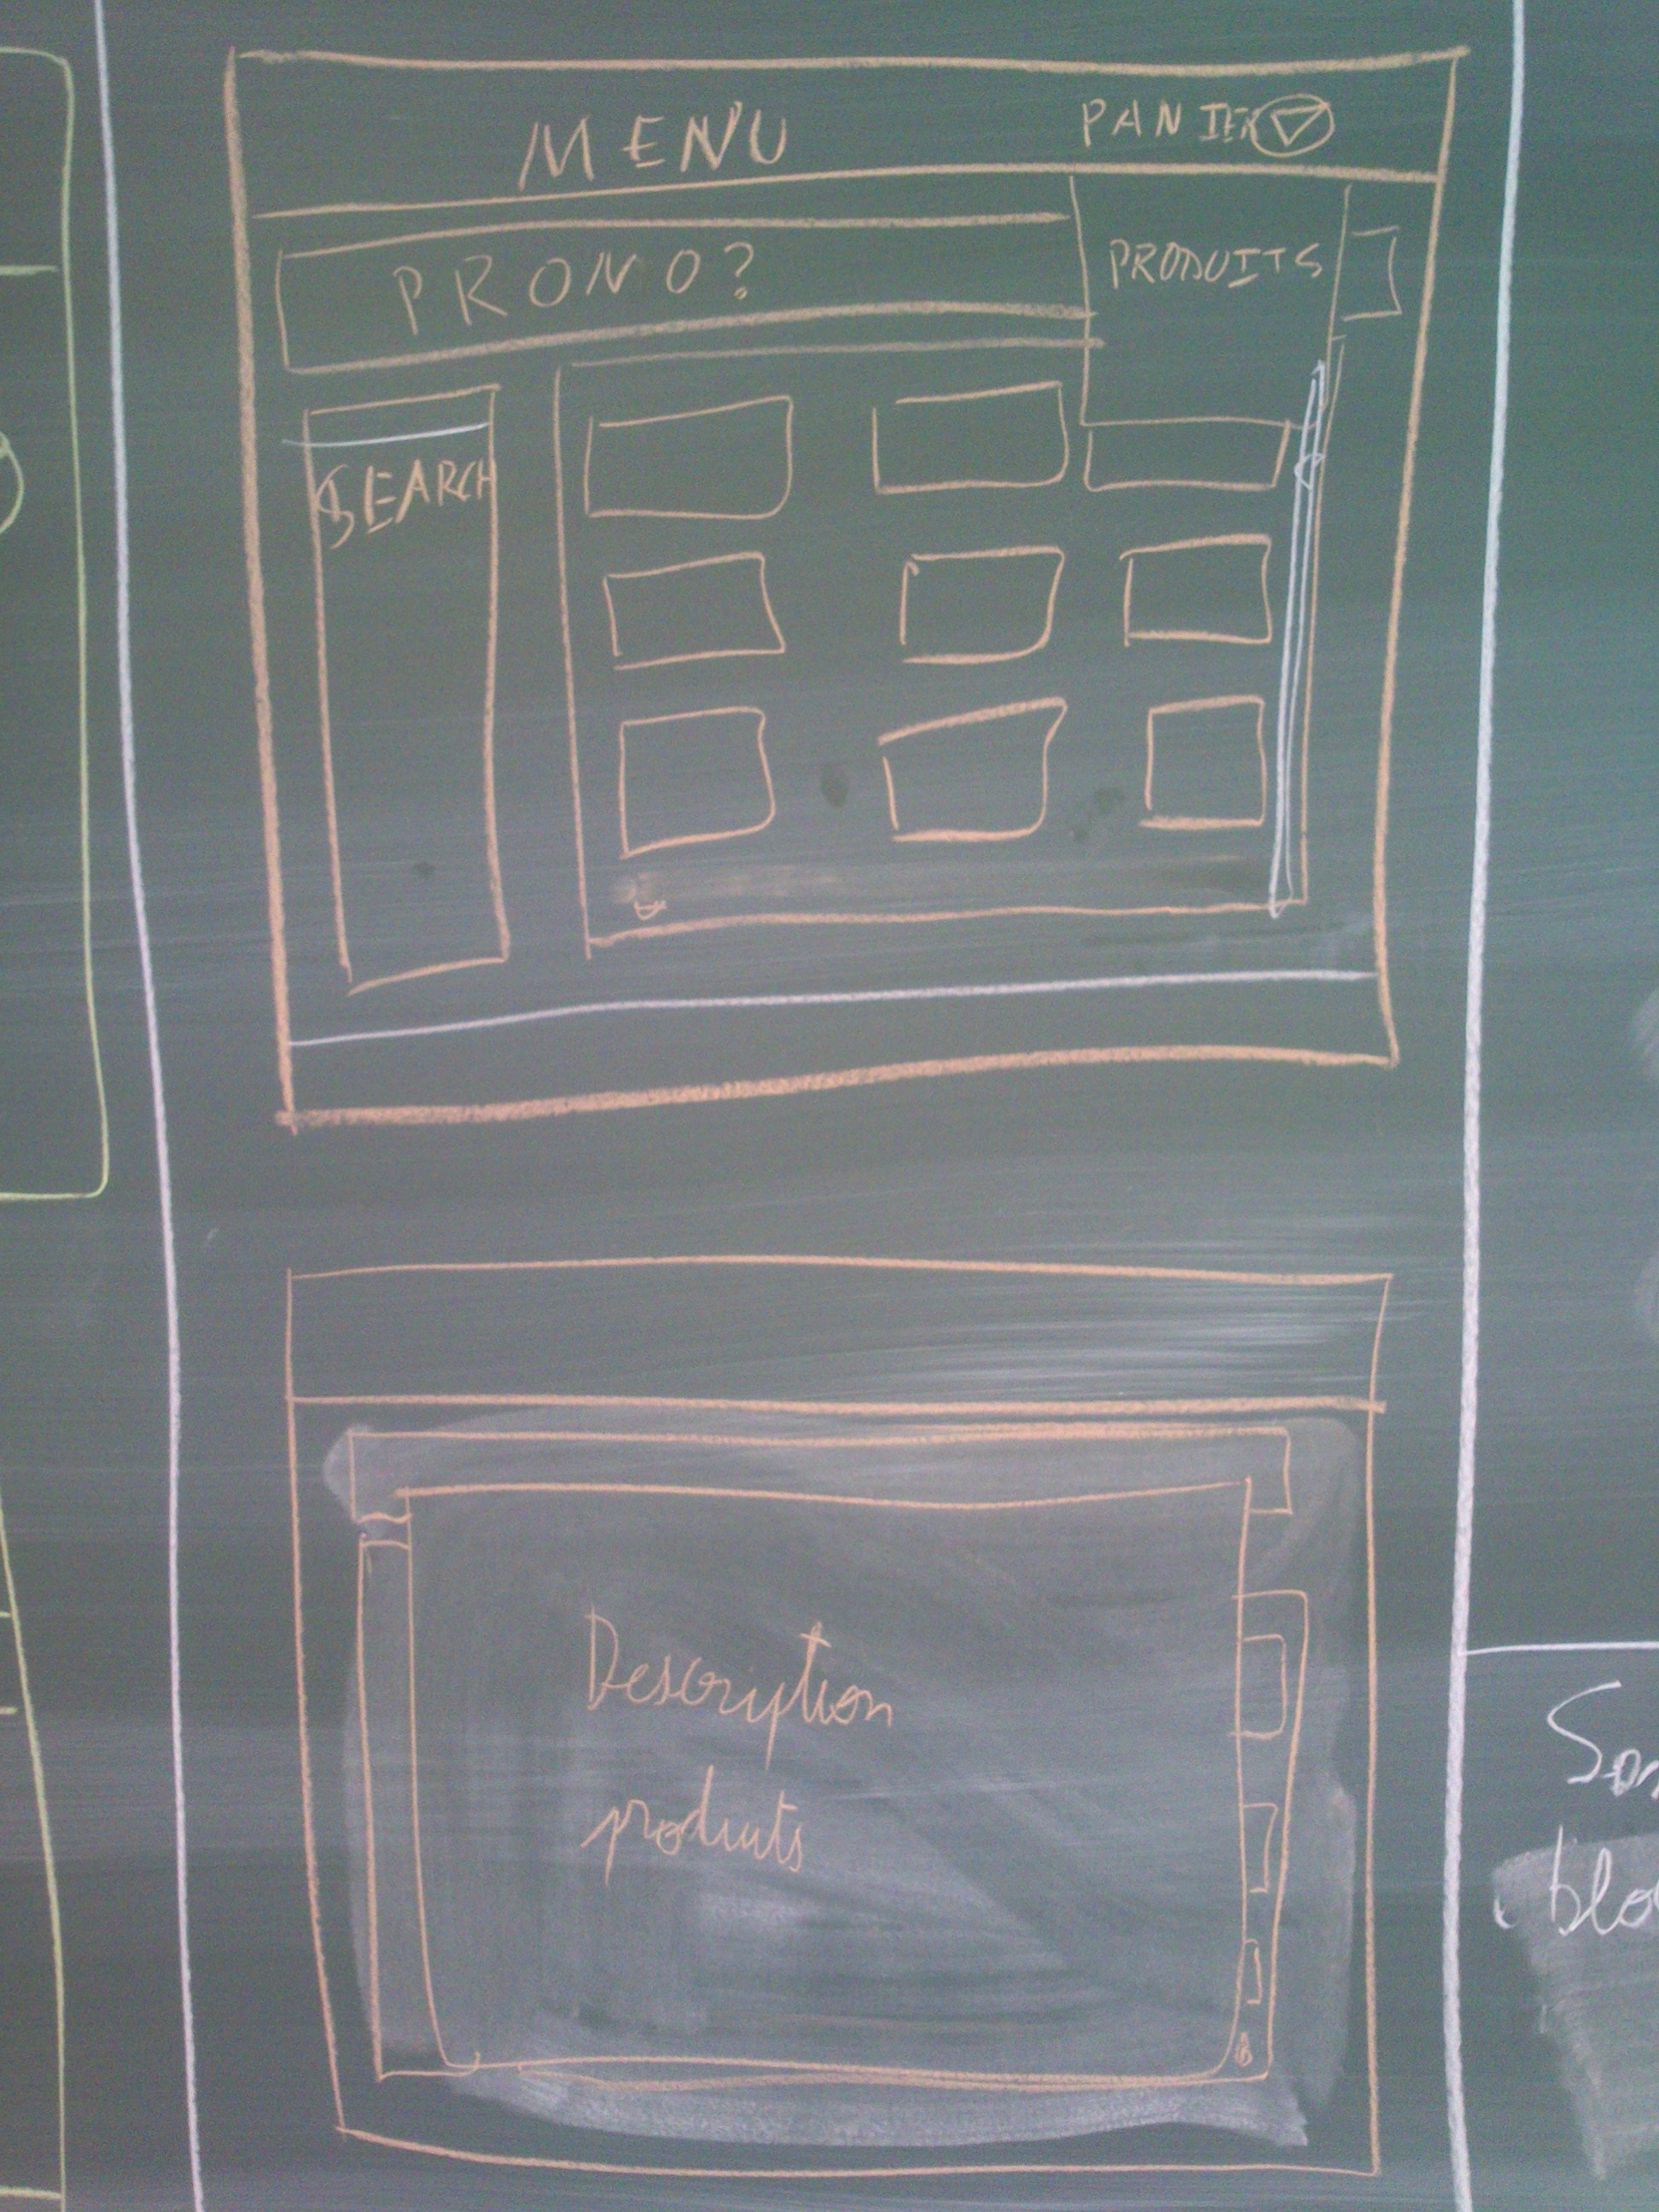 MENU
PANIER
PROMO?
PRODUITS
SEARCH
Description
produits